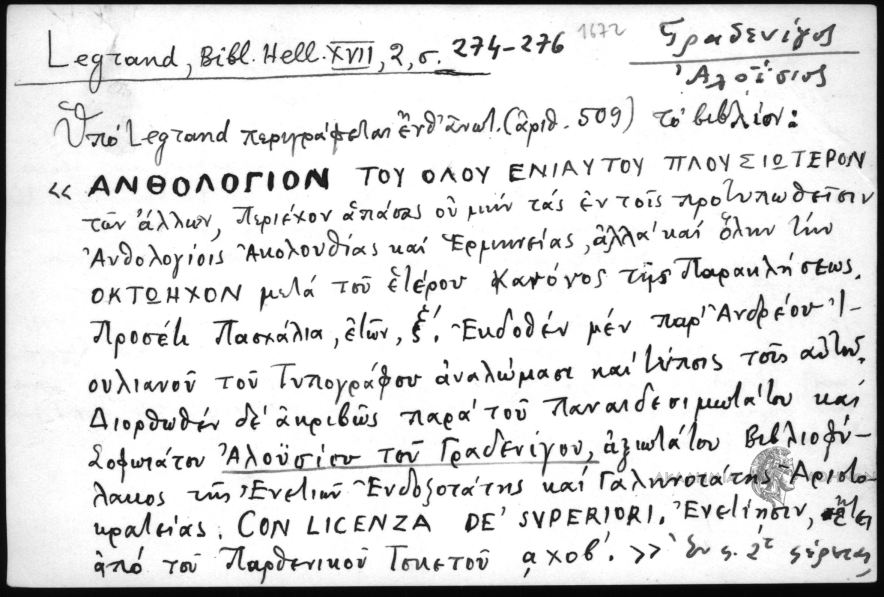 Legrand, Bibl. Hell. XVII, 2, σ. 274-276 1672 Γραδενίγος
Ἀλοΐσιος
Ὑπό Legrand περιγράφεται ἐνθ' ἀνωτ. (ἀριθ. 509) τό βιβλίον:
« ΑΝΘΟΛΟΓΙΟΝ ΤΟΥ ΟΛΟΥ ΕΝΙΑΥΤΟΥ ΠΛΟΥΣΙΩΤΕΡΟΝ
τῶν ἄλλων, περιέχον ἁπάσας οὐ μήν τάς ἐν τοῖς προτυπωθεῖσιν
Ἀνθολογίοις Ἀκολουθίας καί Ἑρμηνείας, ἀλλά καί ὅλην τήν
ΟΚΤΩΗΧΟΝ μετά τοῦ ἑτέρου Κανόνος τῆς Παρακλήσεως.
Προσέτι Πασχάλια, ἐτῶν, ξ'. Ἐκδοθέν μέν παρ' Ἀνδρέου Ἰ-
ουλιανοῦ τοῦ Τυπογράφου ἀναλώμασι καί τύποις τοῖς αὐτοῦ.
Διορθωθέν δέ ἀκριβῶς παρά τοῦ Παναιδεσιμωτάτου καί
Σοφωτάτου Ἀλοϋσίου τοῦ Γραδενίγου, ἀξιωτάτου Βιβλιοφύ-
λακος τῆς Ἐνετιῶν Ἐνδοξοτάτης καί Γαληνοτάτης Ἀριστο-
κρατείας. CON LICENZA DE' SVPERIORI. Ἐνετίησιν, ἔτει
ἀπό τοῦ Παρθενικοῦ Τοκετοῦ αχοβ'. »